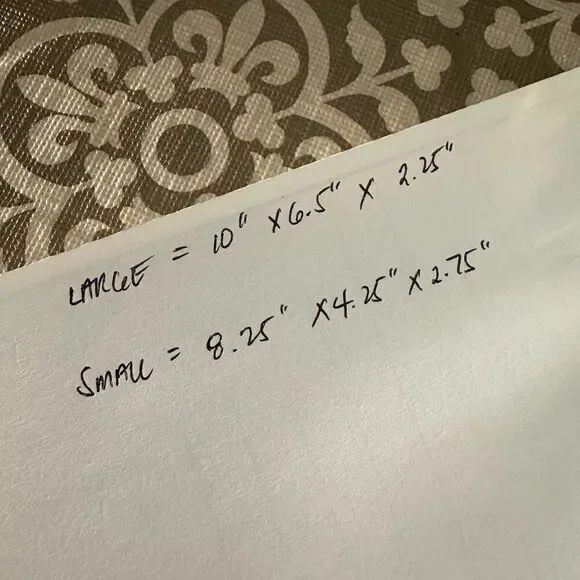 LARGE = 10" X 6.5" X 2.25"
SMALL = 8.25" X 4.25" X 2.75"